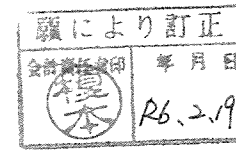 願により訂正
会計責任者印 年月日
榎本
R6.2.19